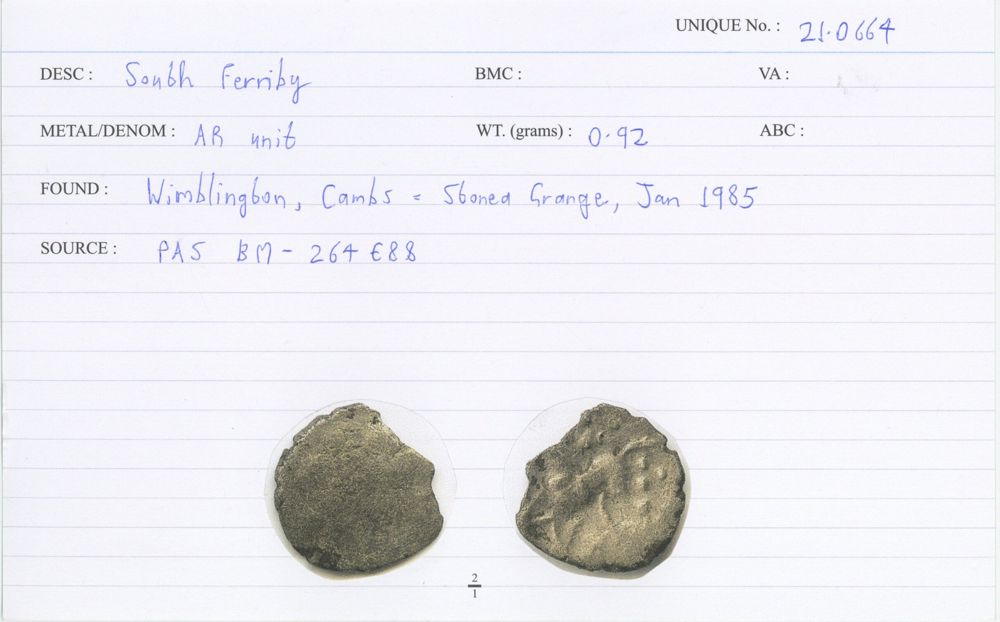 UNIQUE No. : 21.0664
DESC : South Ferriby BMC : VA :
METAL/DENOM : AR unit WT. (grams) : 0.92 ABC :
FOUND : Wimblington, Cambs = Stonea Grange, Jan 1985
SOURCE : PAS BM - 264E88
2
1